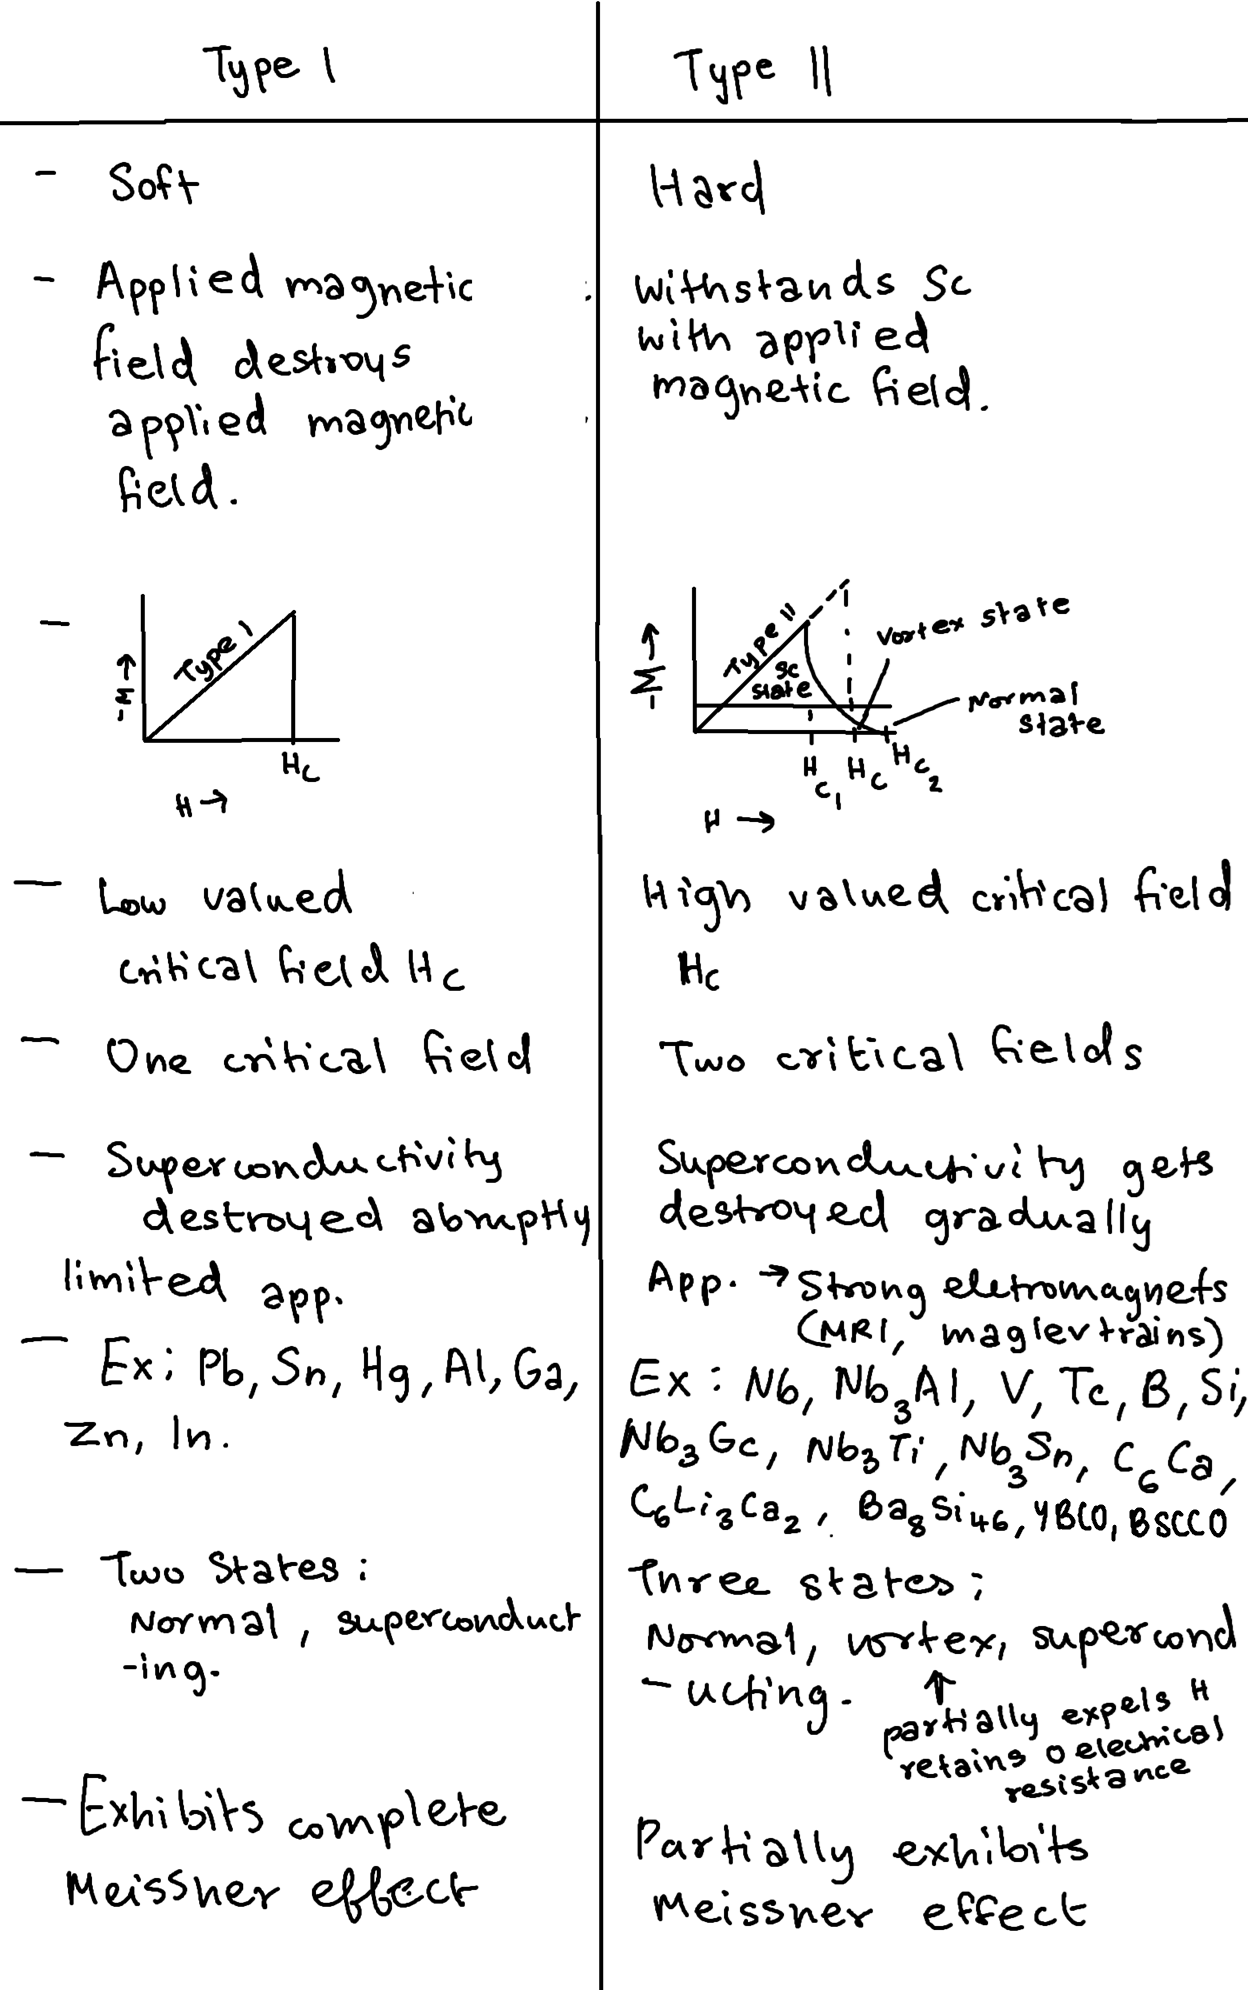 Type I
Type II
- Soft
Hard
- Applied magnetic
field destroys
applied magnetic
field.
withstands Sc
with applied
magnetic field.
-
-M →
Type I
Hc
H →
-M →
Type II
Sc
state
Vortex state
Normal
state
Hc₁
Hc
Hc₂
H →
- Low valued
critical field Hc
High valued critical field
Hc
- One critical field
Two critical fields
- Superconductivity
destroyed abruptly
limited app.
Superconductivity gets
destroyed gradually
App. → Strong eletromagnets
(MRI, maglev trains)
- Ex; Pb, Sn, Hg, Al, Ga,
Zn, In.
Ex : Nb, Nb₃Al, V, Tc, B, Si,
Nb₃Gc, Nb₃Ti, Nb₃Sn, C₆Ca,
C₆Li₃Ca₂, Ba₈Si₄₆, YBCO, BSCCO
- Two States :
Normal, superconduct
-ing.
Three states ;
Normal, vortex, supercond
- ucting.
↑
partially expels H
retains 0 electrical
resistance
- Exhibits complete
Meissner effect
Partially exhibits
Meissner effect